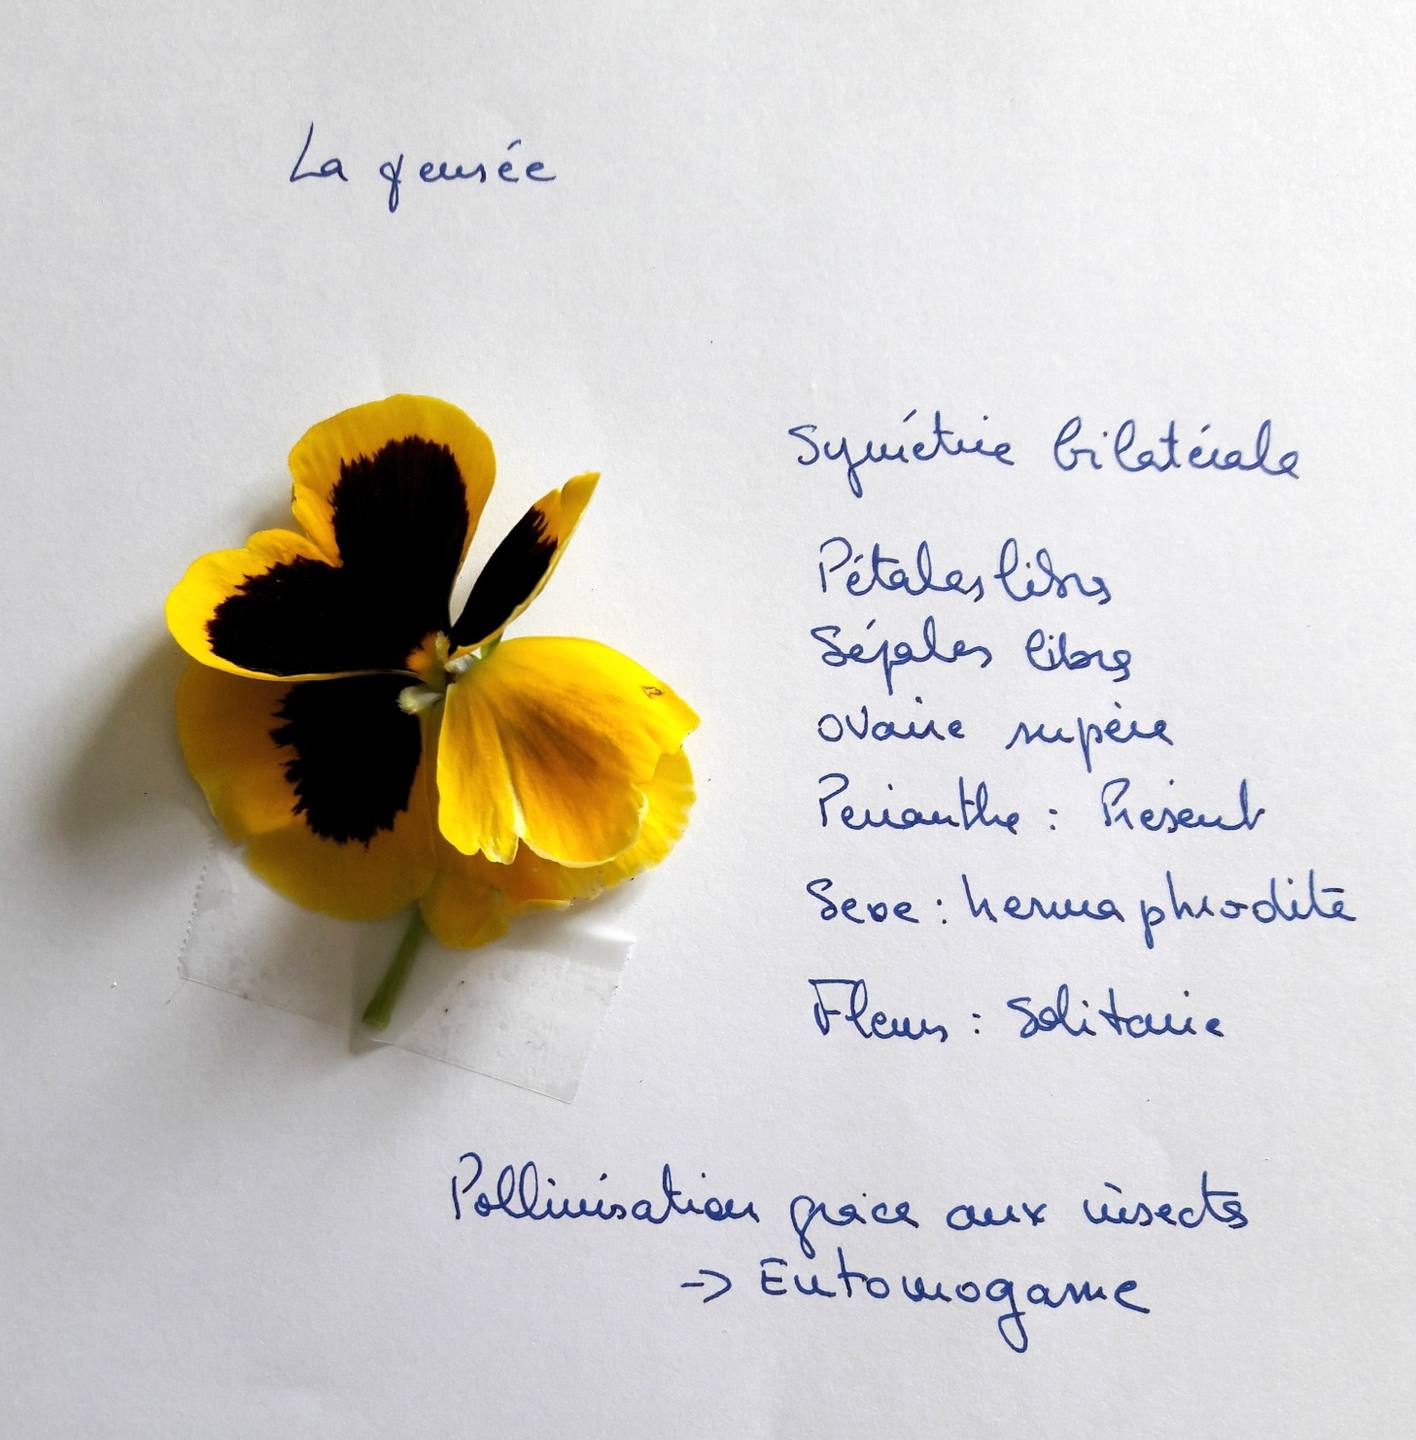 La pensée
Symétrie bilatérale
Pétales libres
Sépales libres
ovaire supère
Perianthe : Présent
Sexe : hermaphrodite
Fleurs : Solitaire
Pollinisation grâce aux insectes
-> Entomogame